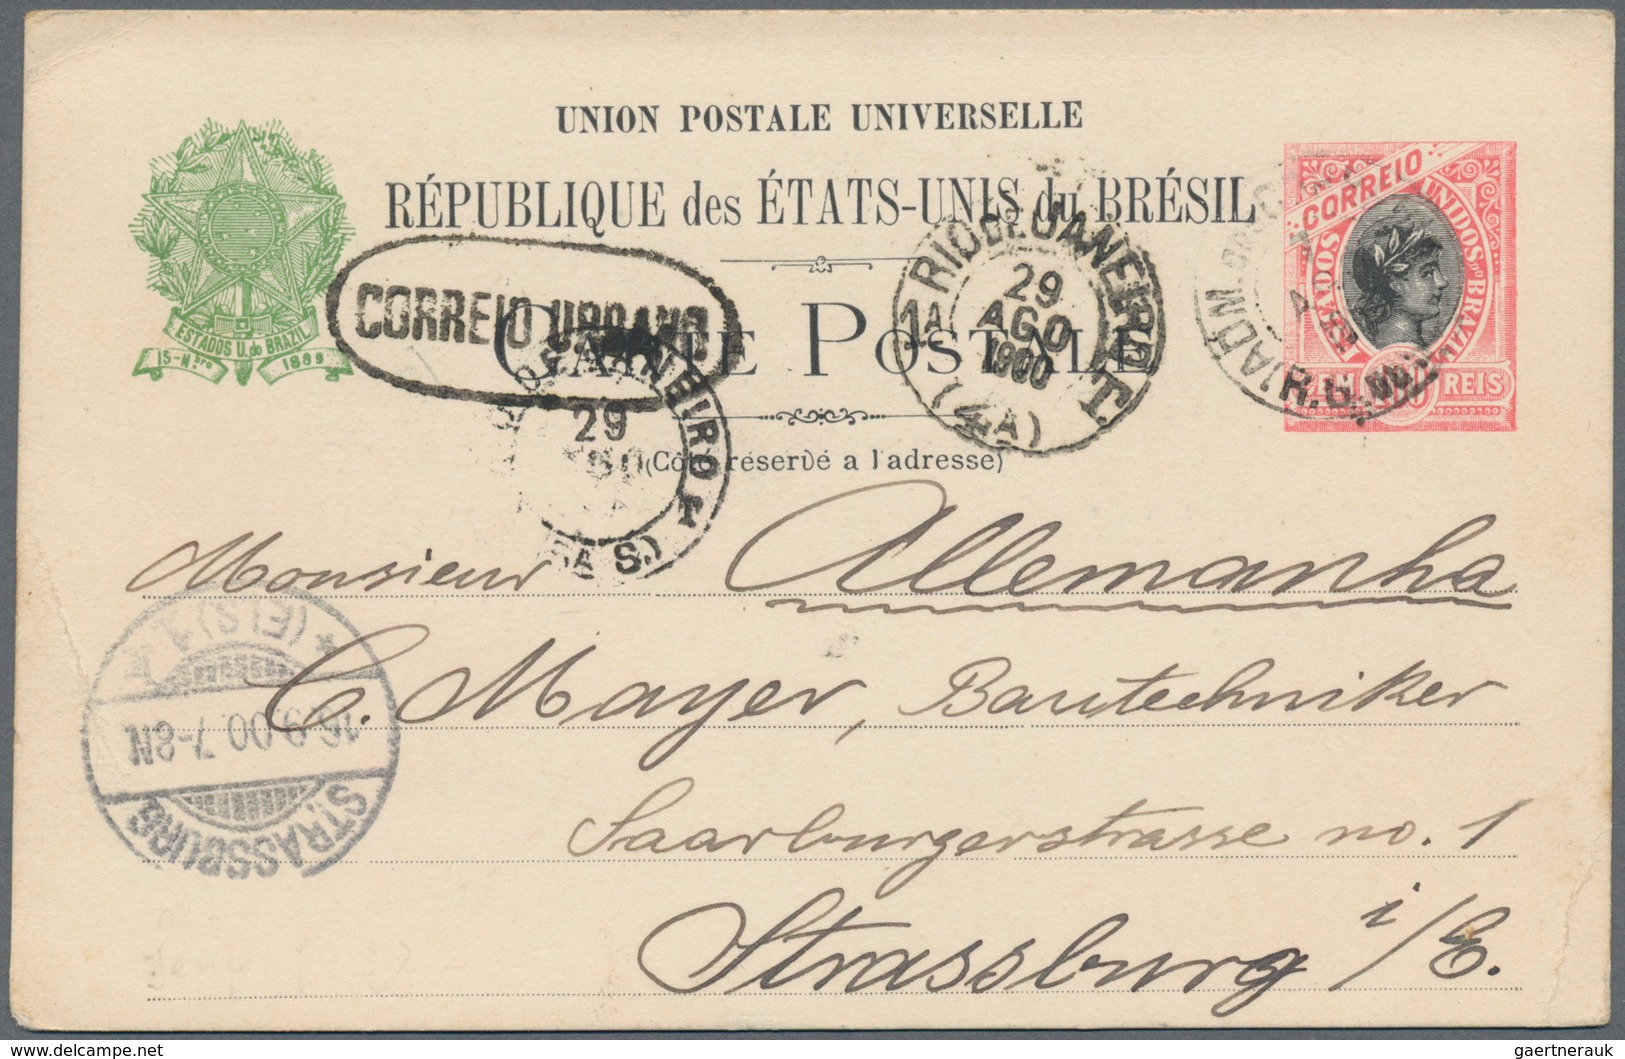 UNION POSTALE UNIVERSELLE
RÉPUBLIQUE des ÉTATS-UNIS du BRÉSIL
CARTE POSTALE
(Côté réservé a l'adresse)
ESTADOS U. do BRAZIL
15-Nbro 1889
CORREIO
ESTADOS UNIDOS do BRAZIL
REIS
CORREIO URBANO
RIO DE JANEIRO
1A T
29
AGO
1900
(4A)
JANEIRO T
29
R.G. No
Monsieur Allemanha
C. Mayer, Bautechniker
Saarburgerstrasse no. 1
Strassburg i/E.
STRASSBURG
16.9.00.7-8N.
* (ELS) 1
delcampe.net
gaertnerauk